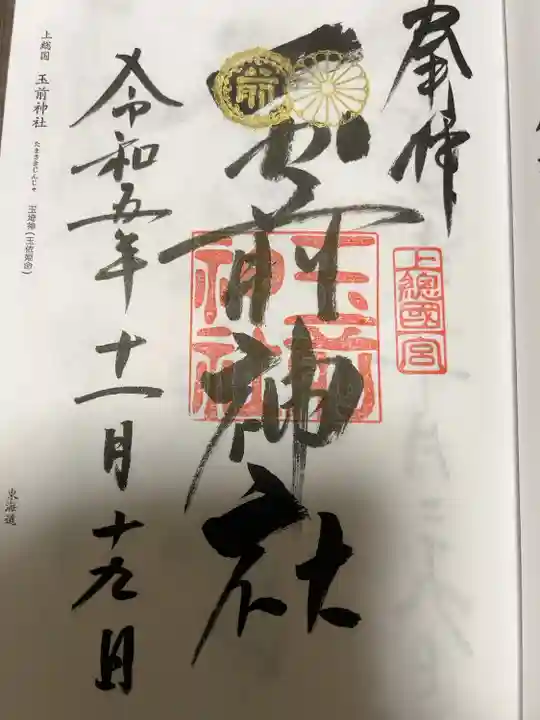 奉拝
上總國一宮
玉前神社
玉前神社
令和五年十一月十九日
上総国 玉前神社 たまさきじんじゃ 玉埼神(玉依姫命)
東海道